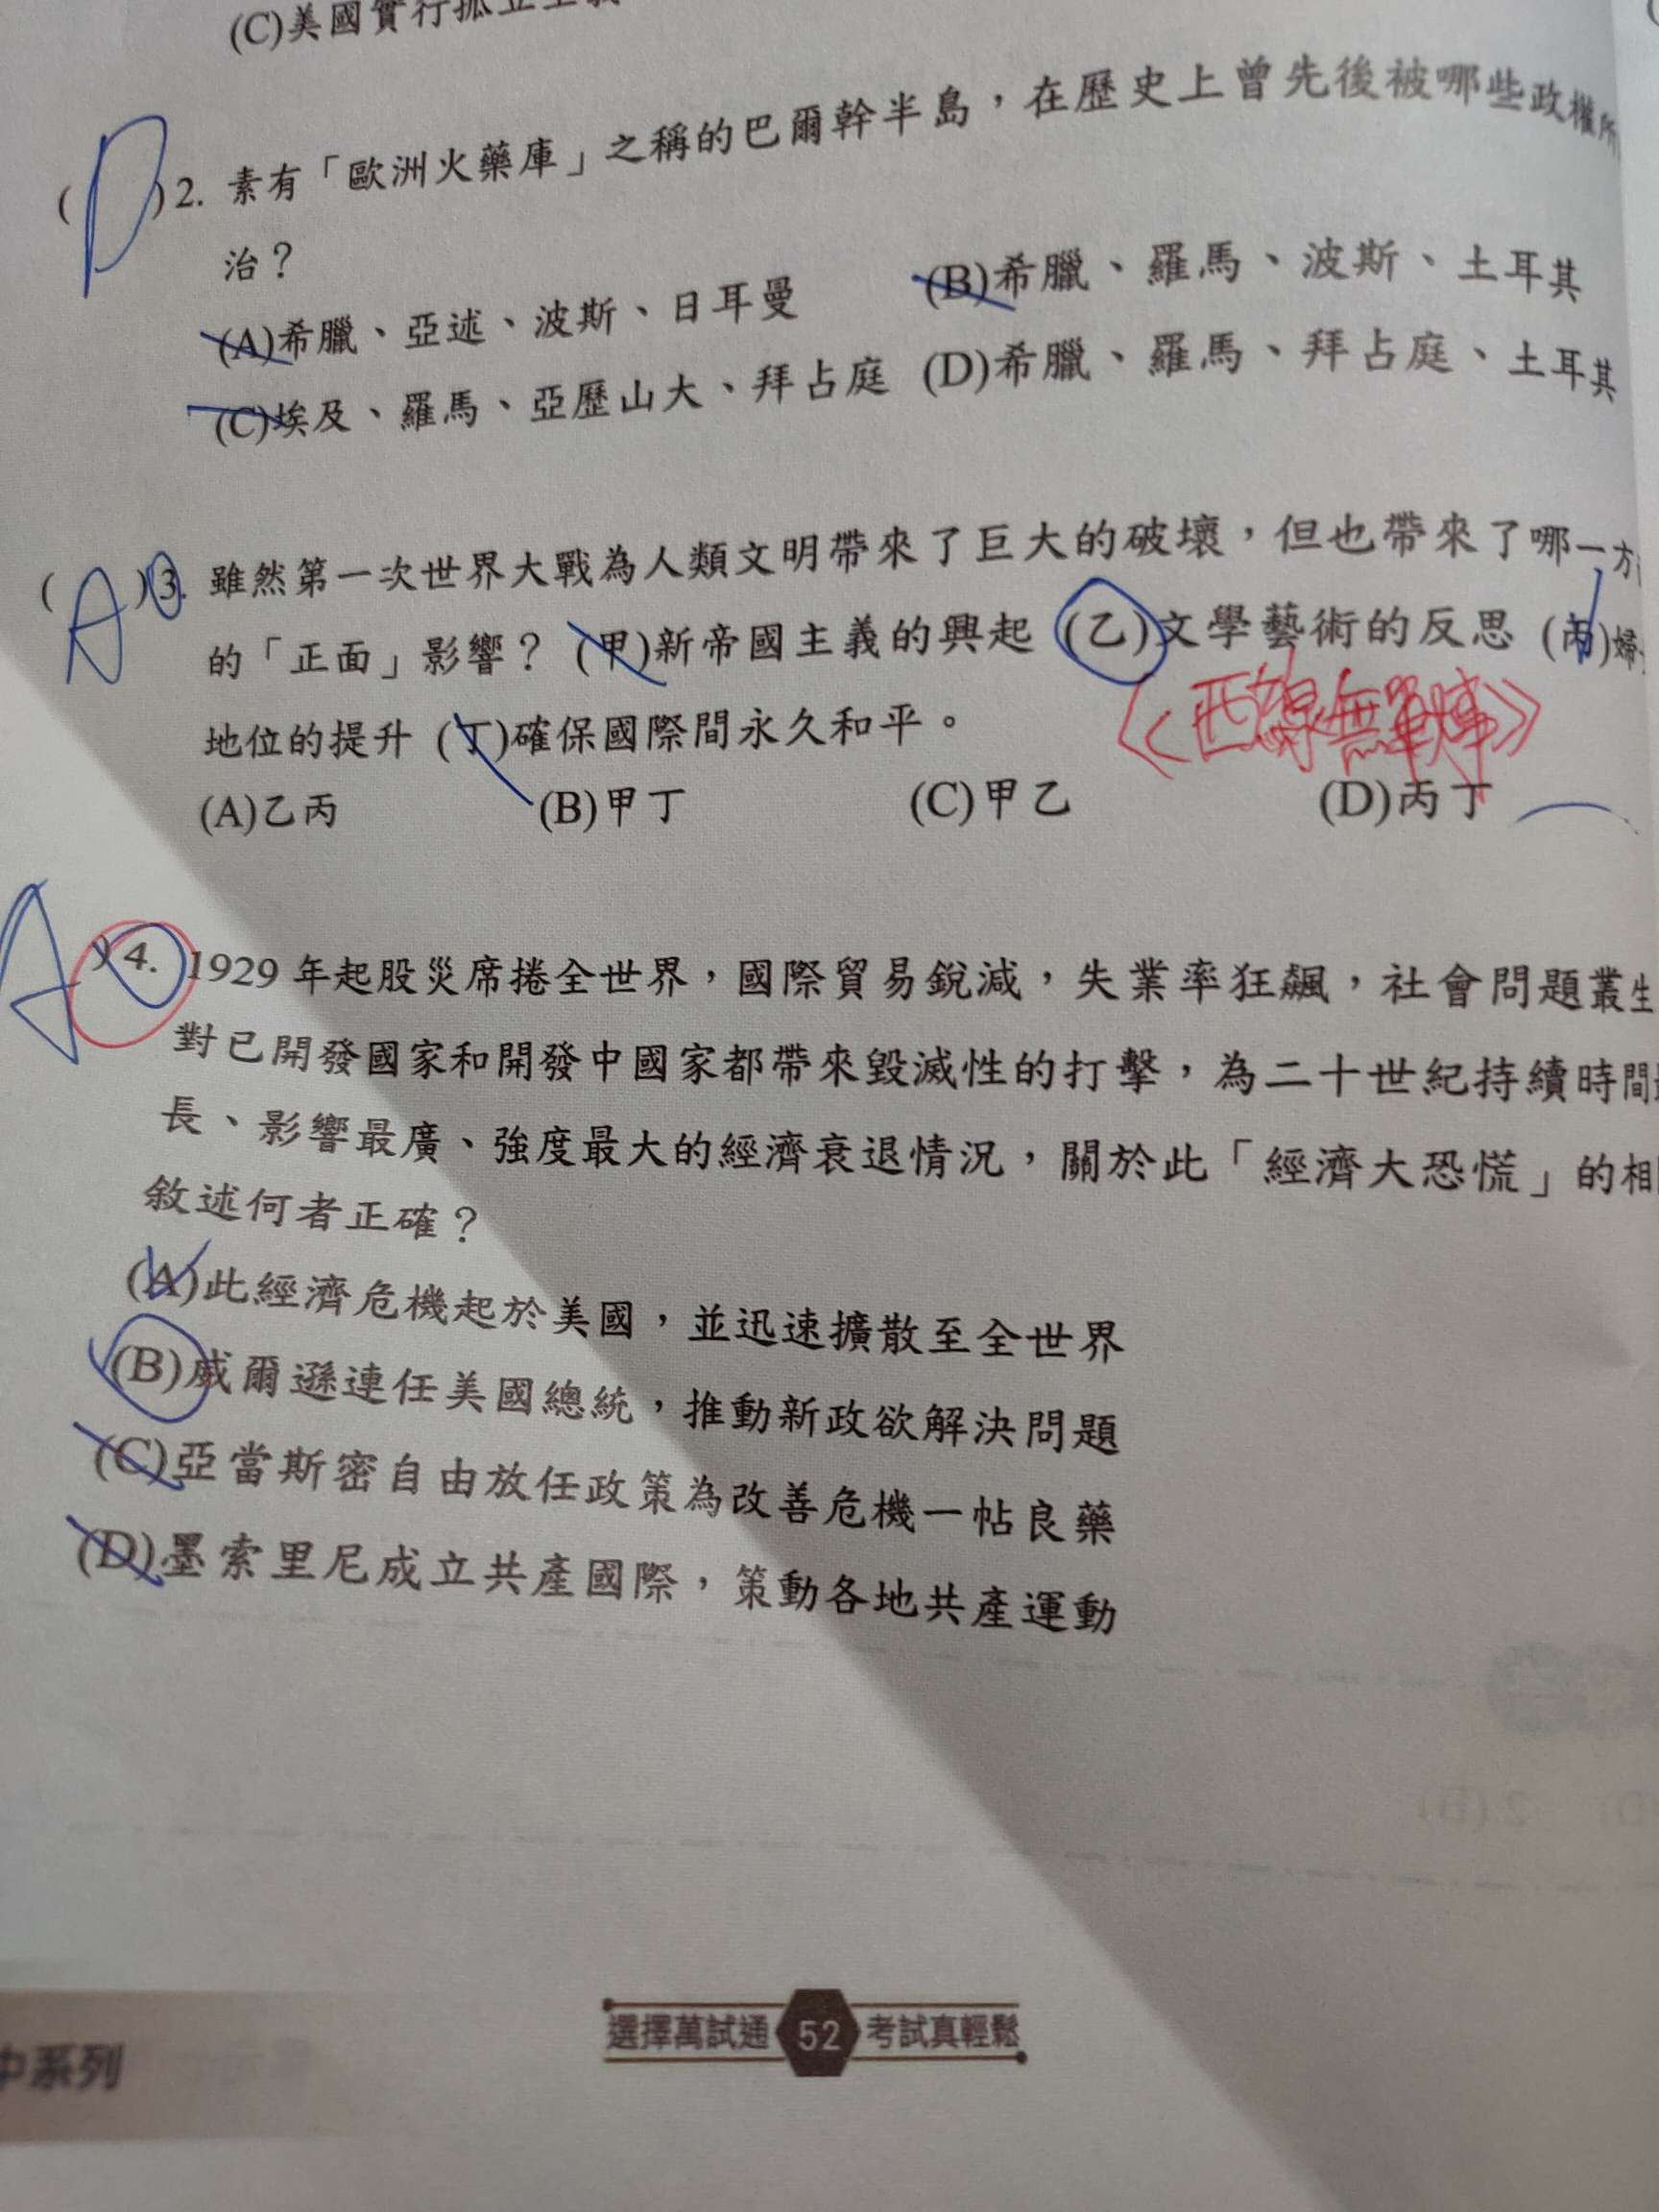 (C)美國實行孤立主義
(D)2. 素有「歐洲火藥庫」之稱的巴爾幹半島，在歷史上曾先後被哪些政權所
治？
(A)希臘、亞述、波斯、日耳曼 (B)希臘、羅馬、波斯、土耳其
(C)埃及、羅馬、亞歷山大、拜占庭 (D)希臘、羅馬、拜占庭、土耳其
(A)3. 雖然第一次世界大戰為人類文明帶來了巨大的破壞，但也帶來了哪一方
的「正面」影響？(甲)新帝國主義的興起 (乙)文學藝術的反思 (丙)婦
《西線無戰事》
地位的提升 (丁)確保國際間永久和平。
(A)乙丙 (B)甲丁 (C)甲乙 (D)丙丁
A)4. 1929 年起股災席捲全世界，國際貿易銳減，失業率狂飆，社會問題叢生
對已開發國家和開發中國家都帶來毀滅性的打擊，為二十世紀持續時間
長、影響最廣、強度最大的經濟衰退情況，關於此「經濟大恐慌」的相
敘述何者正確？
(A)此經濟危機起於美國，並迅速擴散至全世界
(B)威爾遜連任美國總統，推動新政欲解決問題
(C)亞當斯密自由放任政策為改善危機一帖良藥
(D)墨索里尼成立共產國際，策動各地共產運動
選擇萬試通 52 考試真輕鬆
中系列